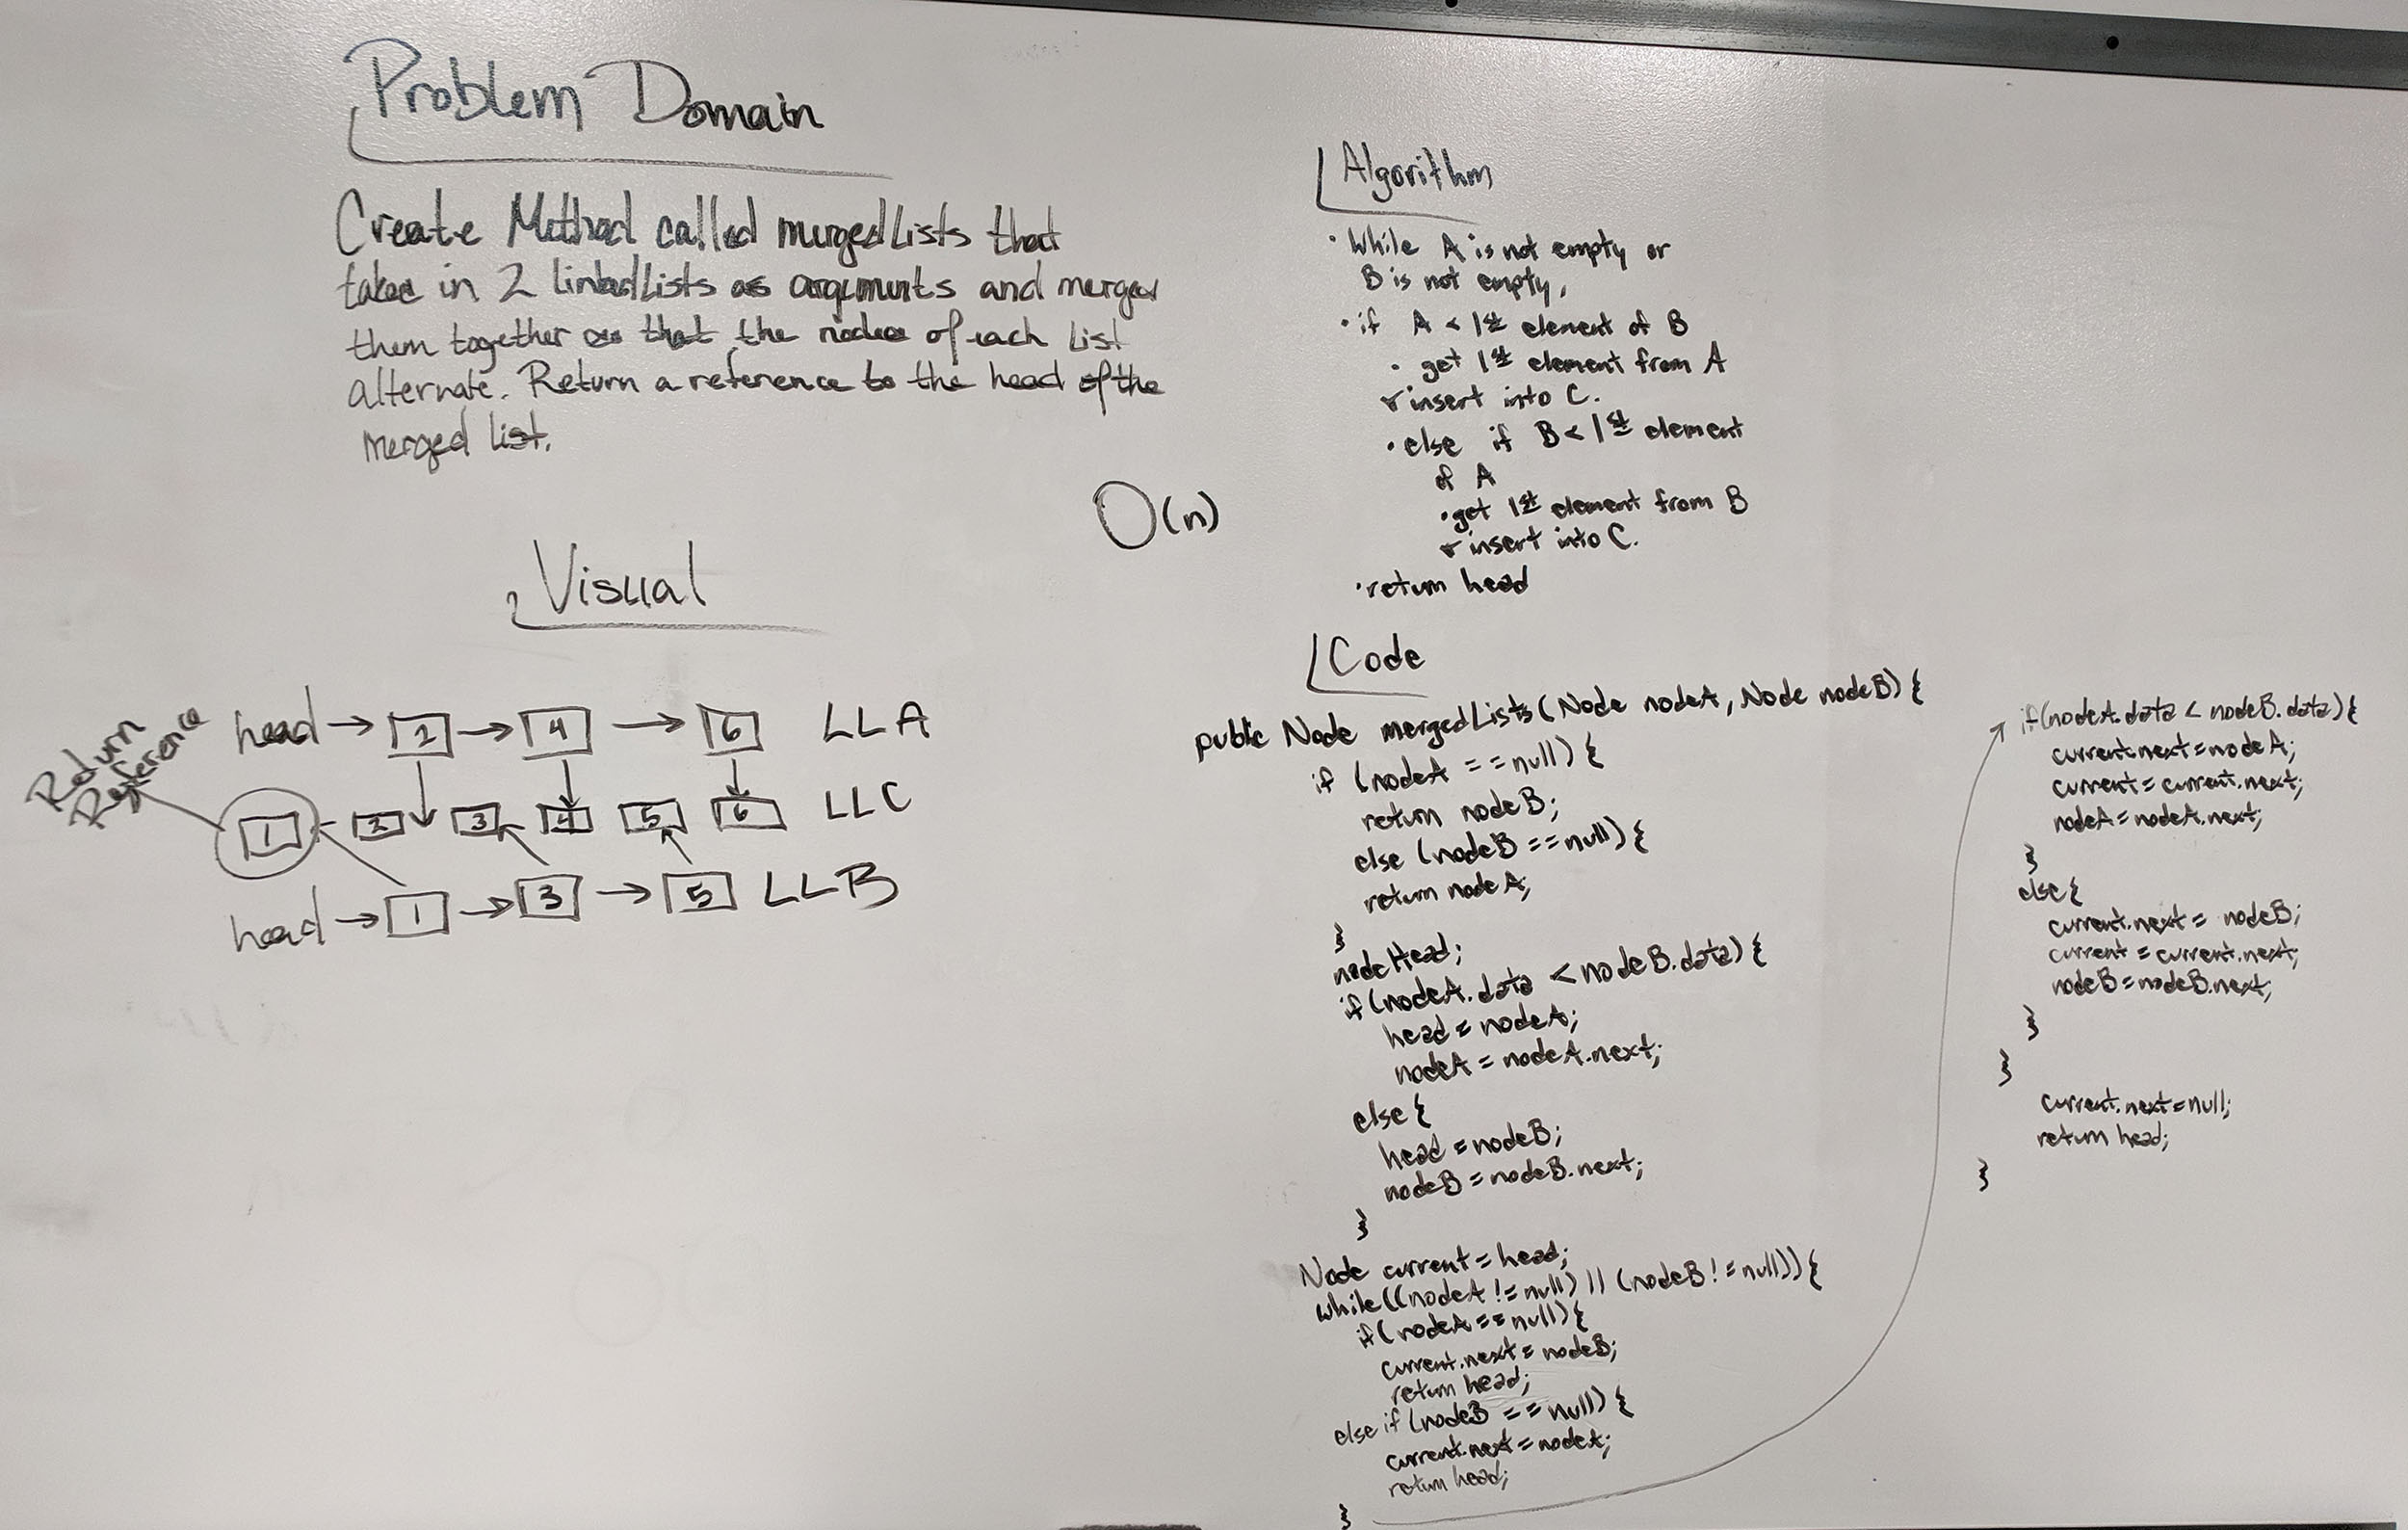 Problem Domain
Create Method called mergedLists that
takes in 2 linkedLists as arguments and merges
them together so that the nodes of each List
alternate. Return a reference to the head of the
merged list.
O(n)
Visual
Return
Reference
head → 2 → 4 → 6 LLA
1 2 3 4 5 6 LLC
head → 1 → 3 → 5 LLB
Algorithm
· While A is not empty or
B is not empty,
· if A < 1st element of B
· get 1st element from A
insert into C.
· else if B < 1st element
of A
· get 1st element from B
insert into C.
· return head
Code
public Node mergedLists(Node nodeA, Node nodeB) {
if (nodeA == null) {
return nodeB;
else (nodeB == null) {
return nodeA;
}
node Head;
if (nodeA.data < nodeB.data) {
head = nodeA;
nodeA = nodeA.next;
else {
head = nodeB;
nodeB = nodeB.next;
}
Node current = head;
while ((nodeA != null) || (nodeB != null)) {
if (nodeA == null) {
current.next = nodeB;
return head;
else if (nodeB == null) {
current.next = nodeA;
return head;
}
if (nodeA.data < nodeB.data) {
current.next = nodeA;
current = current.next;
nodeA = nodeA.next;
}
else {
current.next = nodeB;
current = current.next;
nodeB = nodeB.next;
}
}
current.next = null;
return head;
}